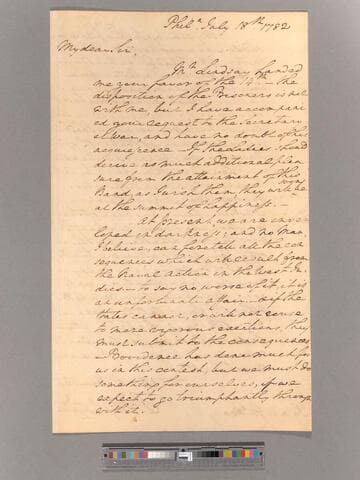 Phila July 18th 1782
My dear Sir,
Mr Lindsay handed
me your favor of the 14th - the
disposition of the Prisoners is not
with me, but I have accompani
ed your request to the Secretary
of War, and have no doubt of his
acquiescence - If the Ladies should
derive as much additional plea
sure from the attainment of this
Band, as I wish them, they will be
at the summit of happiness. -
At present, we are enve
loped in darkness; and no Man,
I believe, can foretell all the con
sequences which will result from
the Naval action in the West In
dies - to say no worse of it, it is
an unfortunate affair. - if the
States cannot, or will not rouse
to more vigorous exertions, they
must submit to the consequences
Providence has done much for
us in this contest, but we must do
something for ourselves, if we
expect to go triumphantly through
with it.